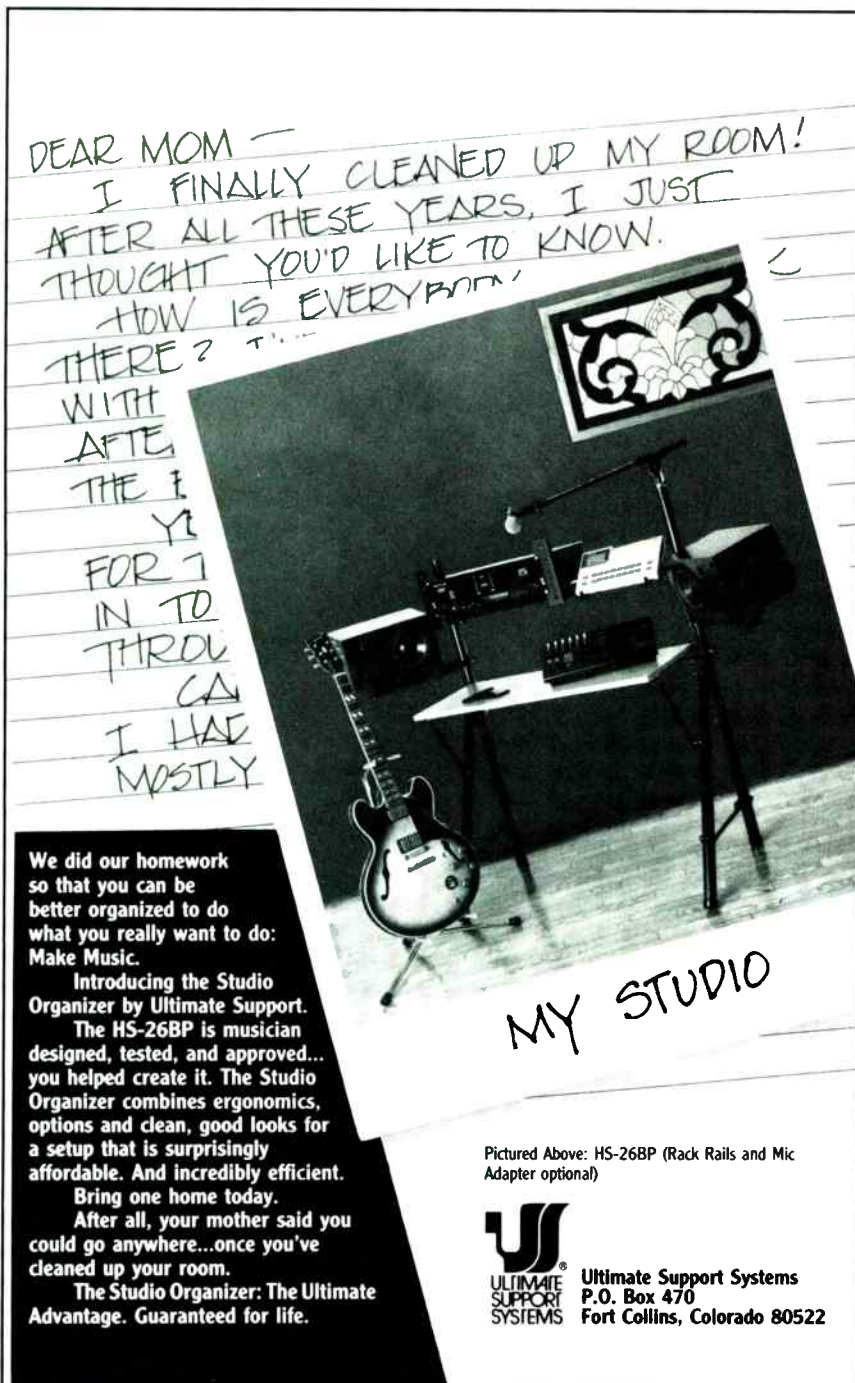 DEAR MOM —
I FINALLY CLEANED UP MY ROOM!
AFTER ALL THESE YEARS, I JUST
THOUGHT YOU'D LIKE TO KNOW.
HOW IS
THERE?
WITH
THE
FOR
IN TO
I HAD
MOSTLY
MY STUDIO
We did our homework
so that you can be
better organized to do
what you really want to do:
Make Music.
Introducing the Studio
Organizer by Ultimate Support.
The HS-26BP is musician
designed, tested, and approved...
you helped create it. The Studio
Organizer combines ergonomics,
options and clean, good looks for
a setup that is surprisingly
affordable. And incredibly efficient.
Bring one home today.
After all, your mother said you
could go anywhere...once you've
cleaned up your room.
The Studio Organizer: The Ultimate
Advantage. Guaranteed for life.
Pictured Above: HS-26BP (Rack Rails and Mic
Adapter optional)
ULTIMATE
SUPPORT
SYSTEMS
®
Ultimate Support Systems
P.O. Box 470
Fort Collins, Colorado 80522